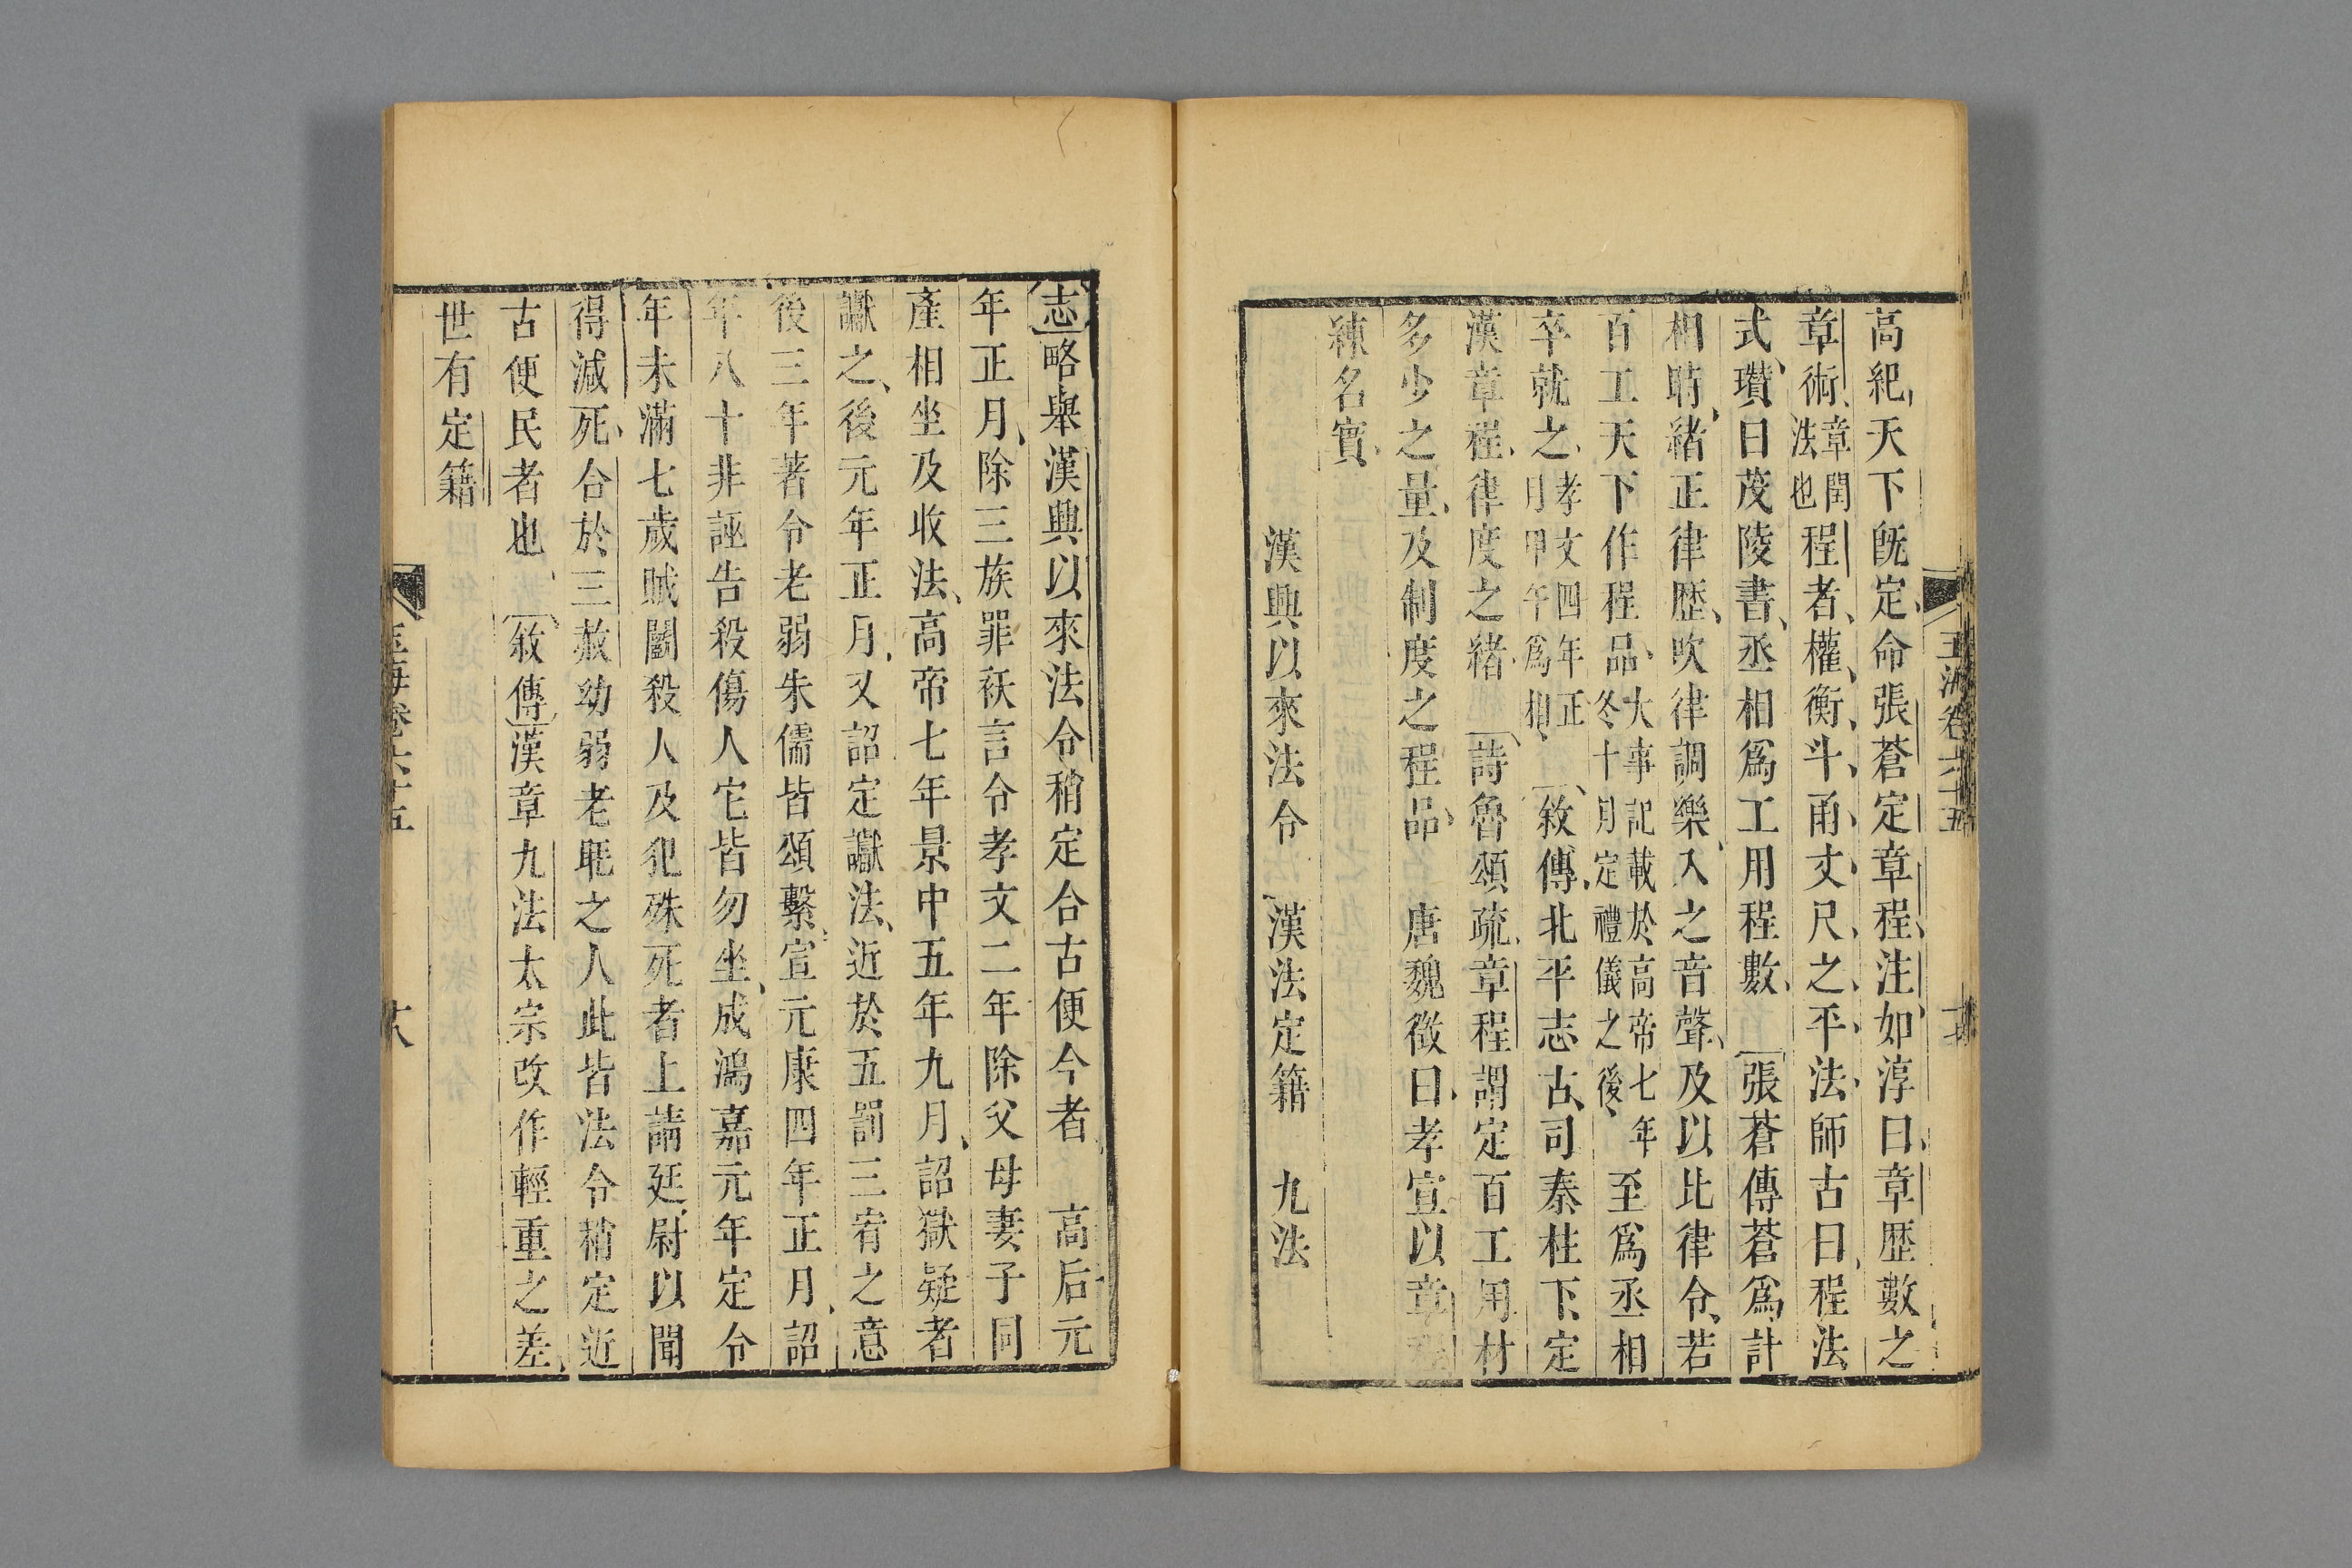 高紀天下旣定命張蒼定章程注如淳曰章歷數之
章術章閏法也程者權衡斗甬丈尺之平法師古曰程法
式瓚曰茂陵書丞相爲工用程數 張蒼傳蒼爲計
相時緒正律歷吹律調樂入之音聲及以比律令若
百工天下作程品大事記載於高帝七年冬十月定禮儀之後至爲丞相
卒就之孝文四年正月甲午爲相 敘傳北平志古司秦柱下定
漢章程律度之緒 詩魯頌疏章程謂定百工用材
多少之量及制度之程品 唐魏徵曰孝宣以章程
練名實
漢興以來法令 漢法定籍 九法
玉海卷六十五
志略舉漢興以來法令稍定合古便今者 高后元
年正月除三族罪祅言令孝文二年除父母妻子同
產相坐及收法高帝七年景中五年九月詔獄疑者
讞之後元年正月又詔定讞法近於五罰三宥之意
後三年著令老弱朱儒皆頌繫宣元康四年正月詔
年八十非誣告殺傷人它皆勿坐成鴻嘉元年定令
年未滿七歲賊鬭殺人及犯殊死者上請廷尉以聞
得減死合於三赦幼弱老眊之人此皆法令稍定近
古便民者也 敘傳漢章九法太宗改作輕重之差
世有定籍
玉海卷六十五